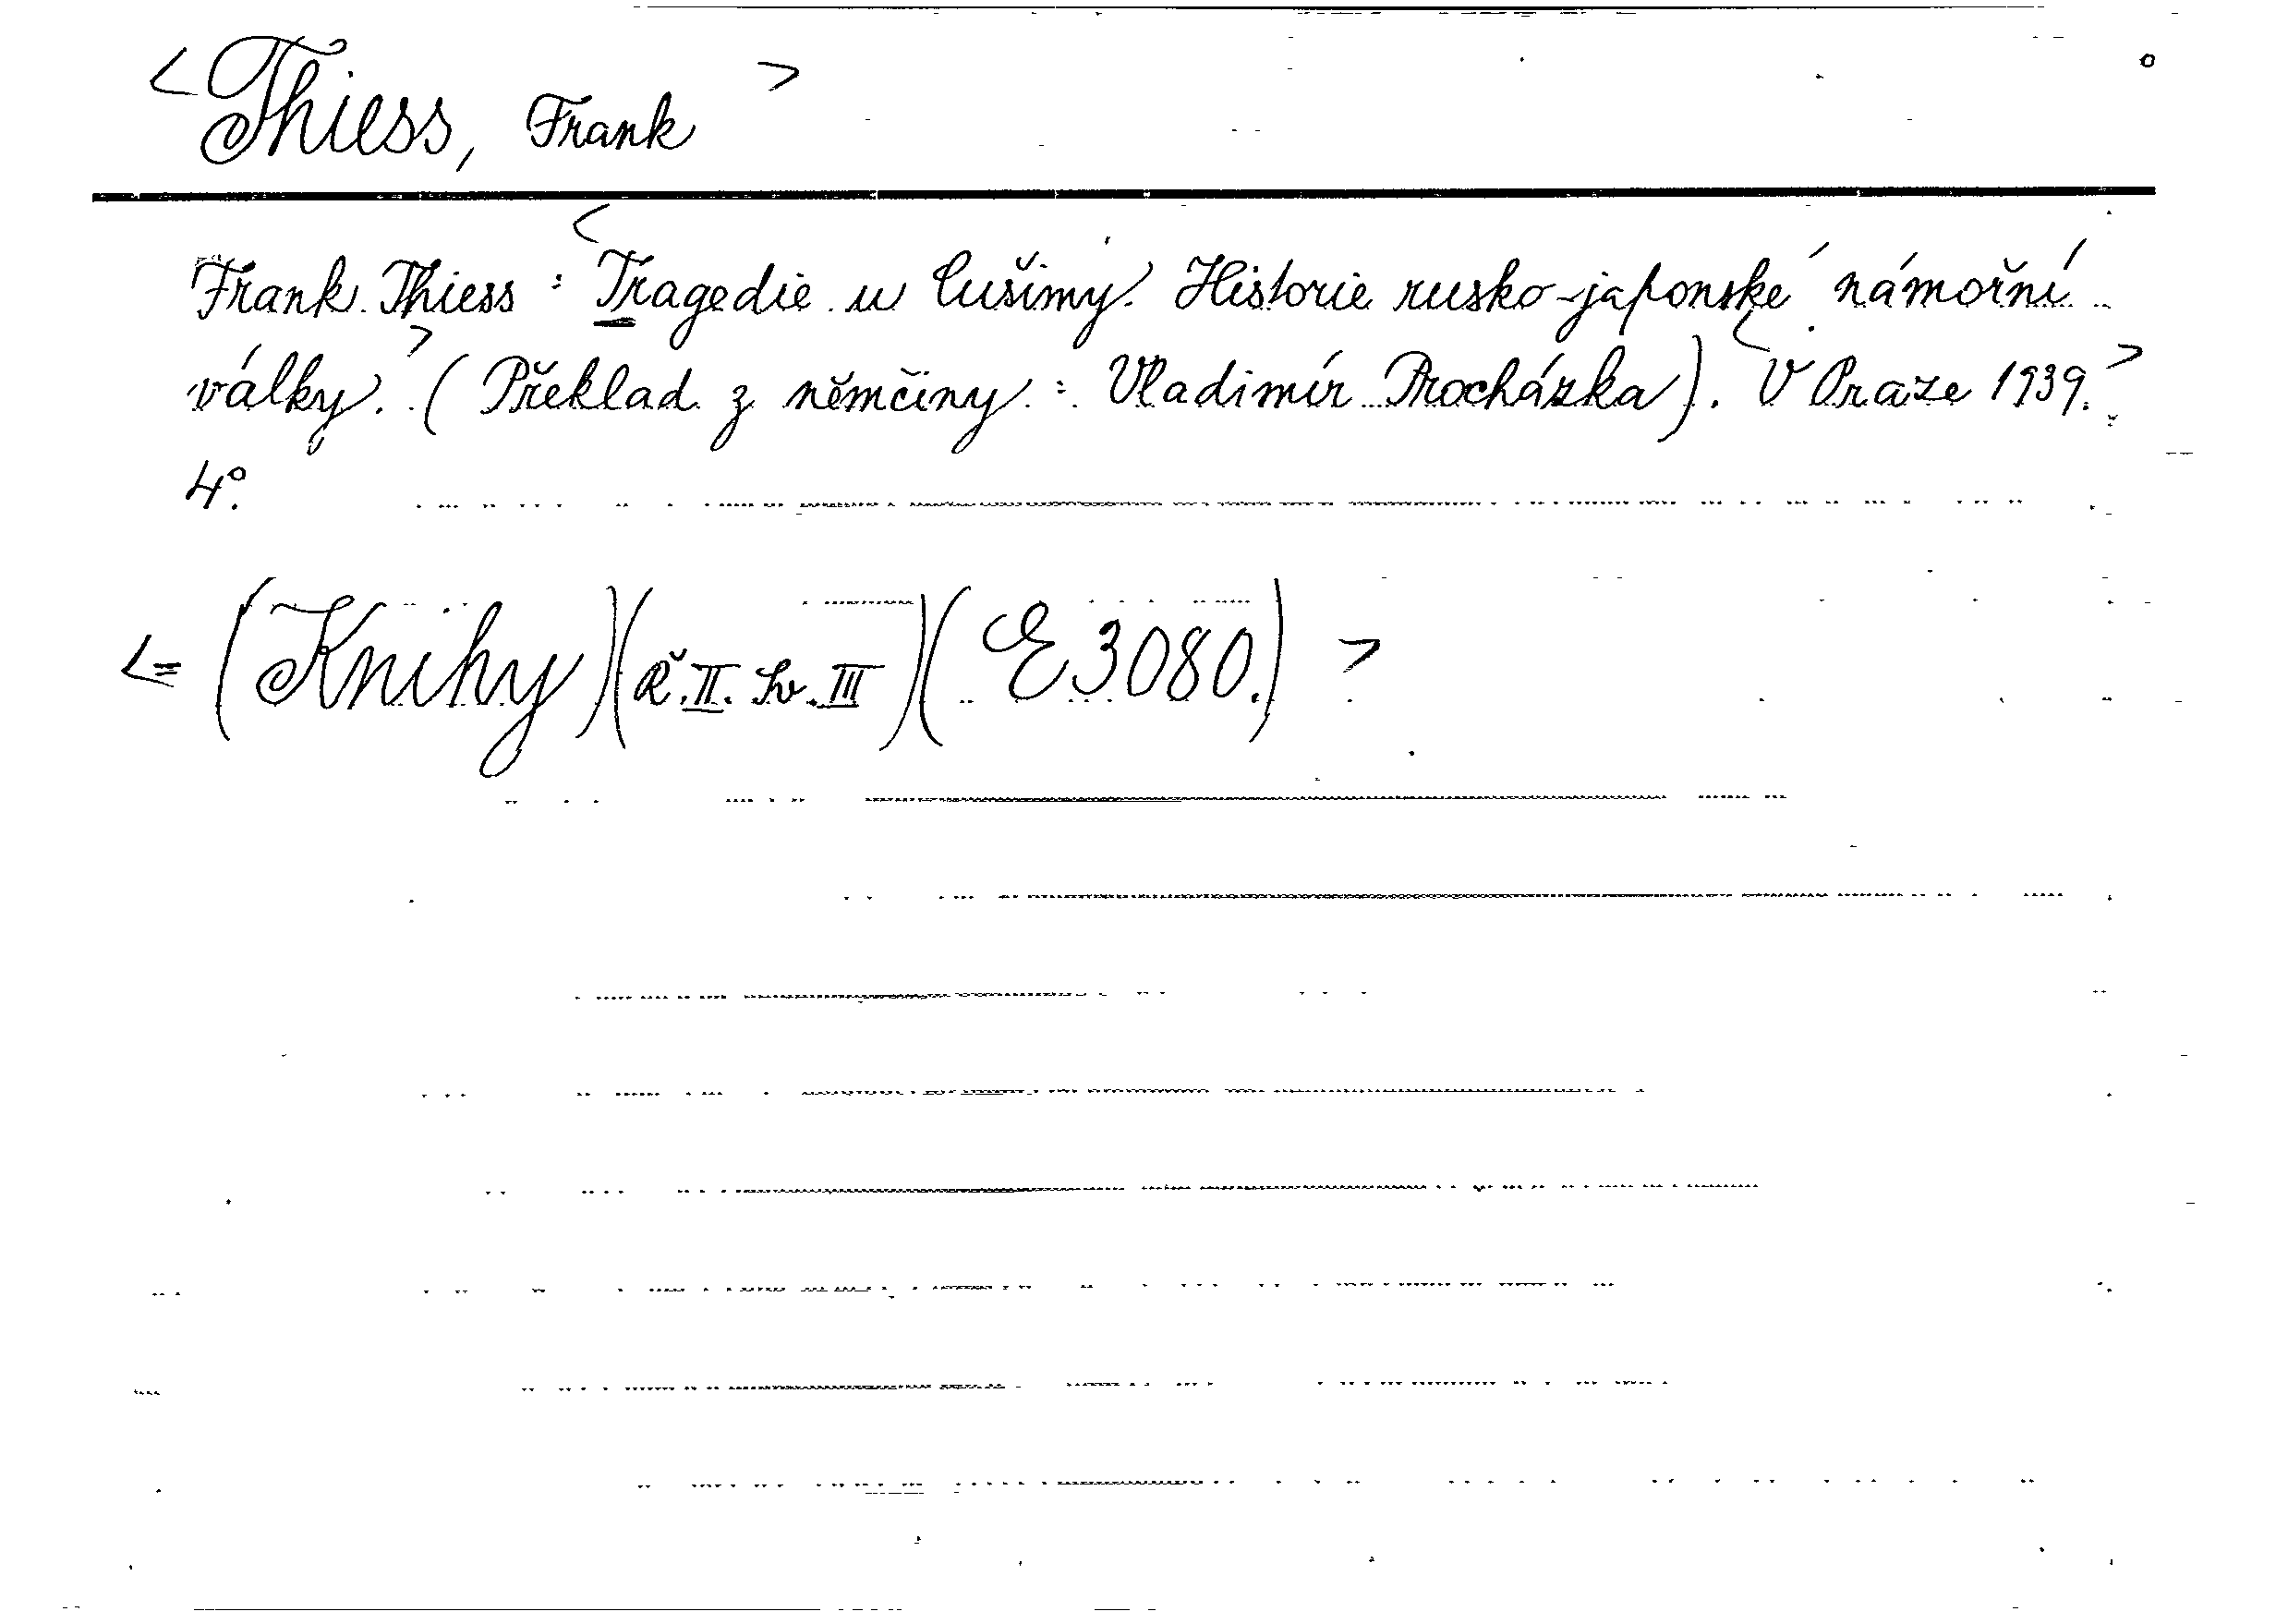 <Thiess, Frank>
Frank Thiess: <Tragedie u Cušimy. Historie rusko-japonské námořní
války.> (Překlad z němčiny: Vladimír Procházka). <V Praze 1939.>
4°.
<= (Knihy)(Ř.II. Sv.III)(E 3080.)>